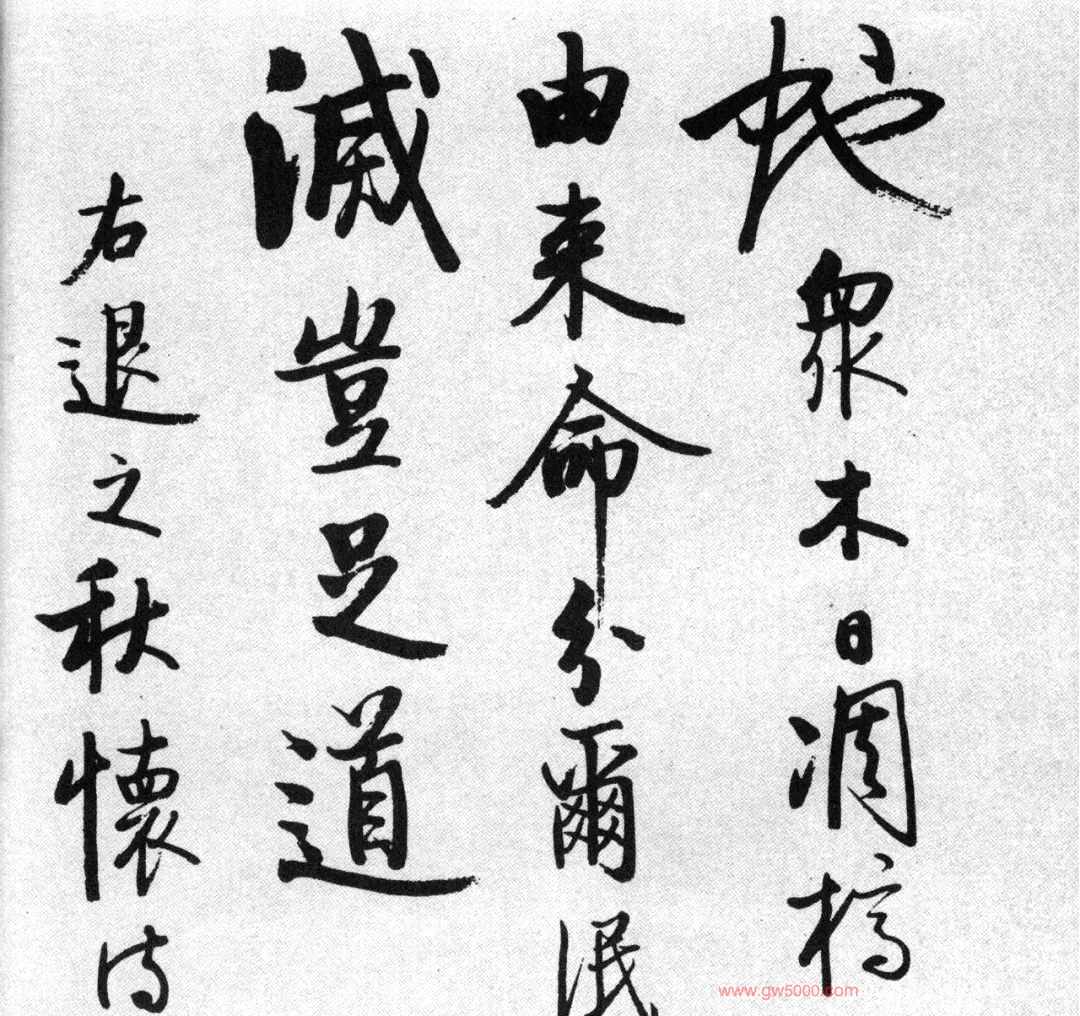 蛇衆木日凋槁
由來命分爾泯
滅豈足道
右退之秋懷詩
www.gw5000.com